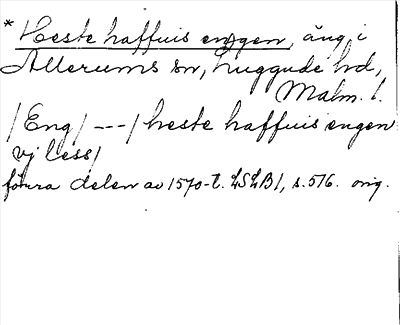 * Heste haffuis engen, äng i
Allerums sn, Luggude hd,
Malm. l.
/Eng/ --- / heste haffuis engen
vj less/
förra delen av 1570-t. LSLB1, s. 516. orig.